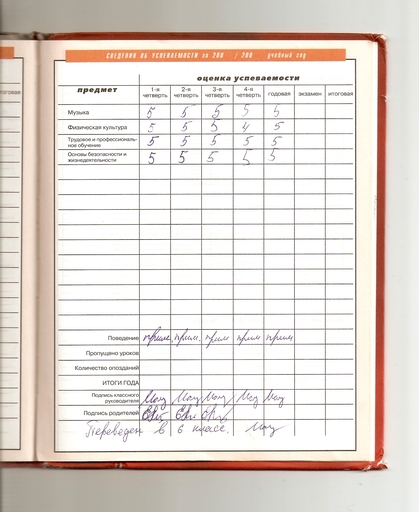 СВЕДЕНИЯ ОБ УСПЕВАЕМОСТИ за 200 / 200 учебный год
итоговая
предмет
оценка успеваемости
1-я четверть 2-я четверть 3-я четверть 4-я четверть годовая экзамен итоговая
Музыка 5 5 5 5 5
Физическая культура 5 5 5 4 5
Трудовое и профессиональ-
ное обучение 5 5 5 5 5
Основы безопасности и
жизнедеятельности 5 5 5 5 5
Поведение прим. прим. прим прим прим
Пропущено уроков
Количество опозданий
ИТОГИ ГОДА
Подпись классного
руководителя
Подпись родителей
Переведен в 6 класс.